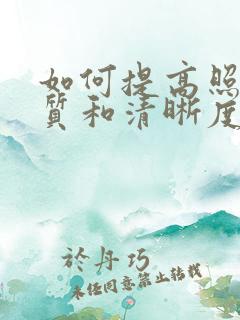 如何提高照
质和清晰度
於丹巧
未经同意禁止转载